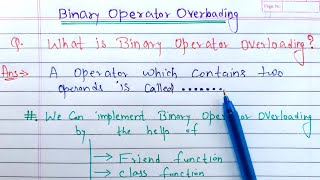 Binary Operator Overloading
Q. What is Binary Operator Overloading?
Ans:→ A Operator which contains two
operands is called .......
#. We Can implement Binary Operator Overloading
by the help of
→ Friend function
→ class function